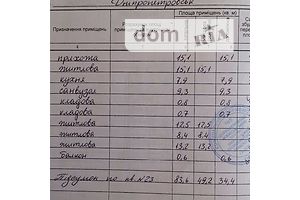 Дніпропетровськ
Площа приміщень (кв. м)
Призначення приміщень
прихожа 15,1 15,1
житлова 15,1 15,1
кухня 7,9 7,9
санвузол 9,3 9,3
кладова 0,8 0,8
кладова 0,7 0,7
житлова 17,5 17,5
житлова 8,4 8,4
житлова 13,2 13,2
балкон 0,6 0,6
Підсумок по кв. №23 83,6 49,2 34,4
dom RIA